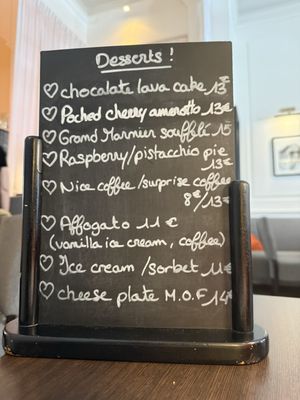 Desserts !
♡ chocalate lava cake 13€
♡ Poched cherry amaretto 13€
♡ Grand Marnier soufflé 15
♡ Raspberry/pistacchio pie
13€
♡ Nice coffee/surprise coffee
8€/13€
♡ Affogato 11€
(vanilla ice cream, coffee)
♡ Ice cream/sorbet 11€
♡ cheese plate M.O.F 14€